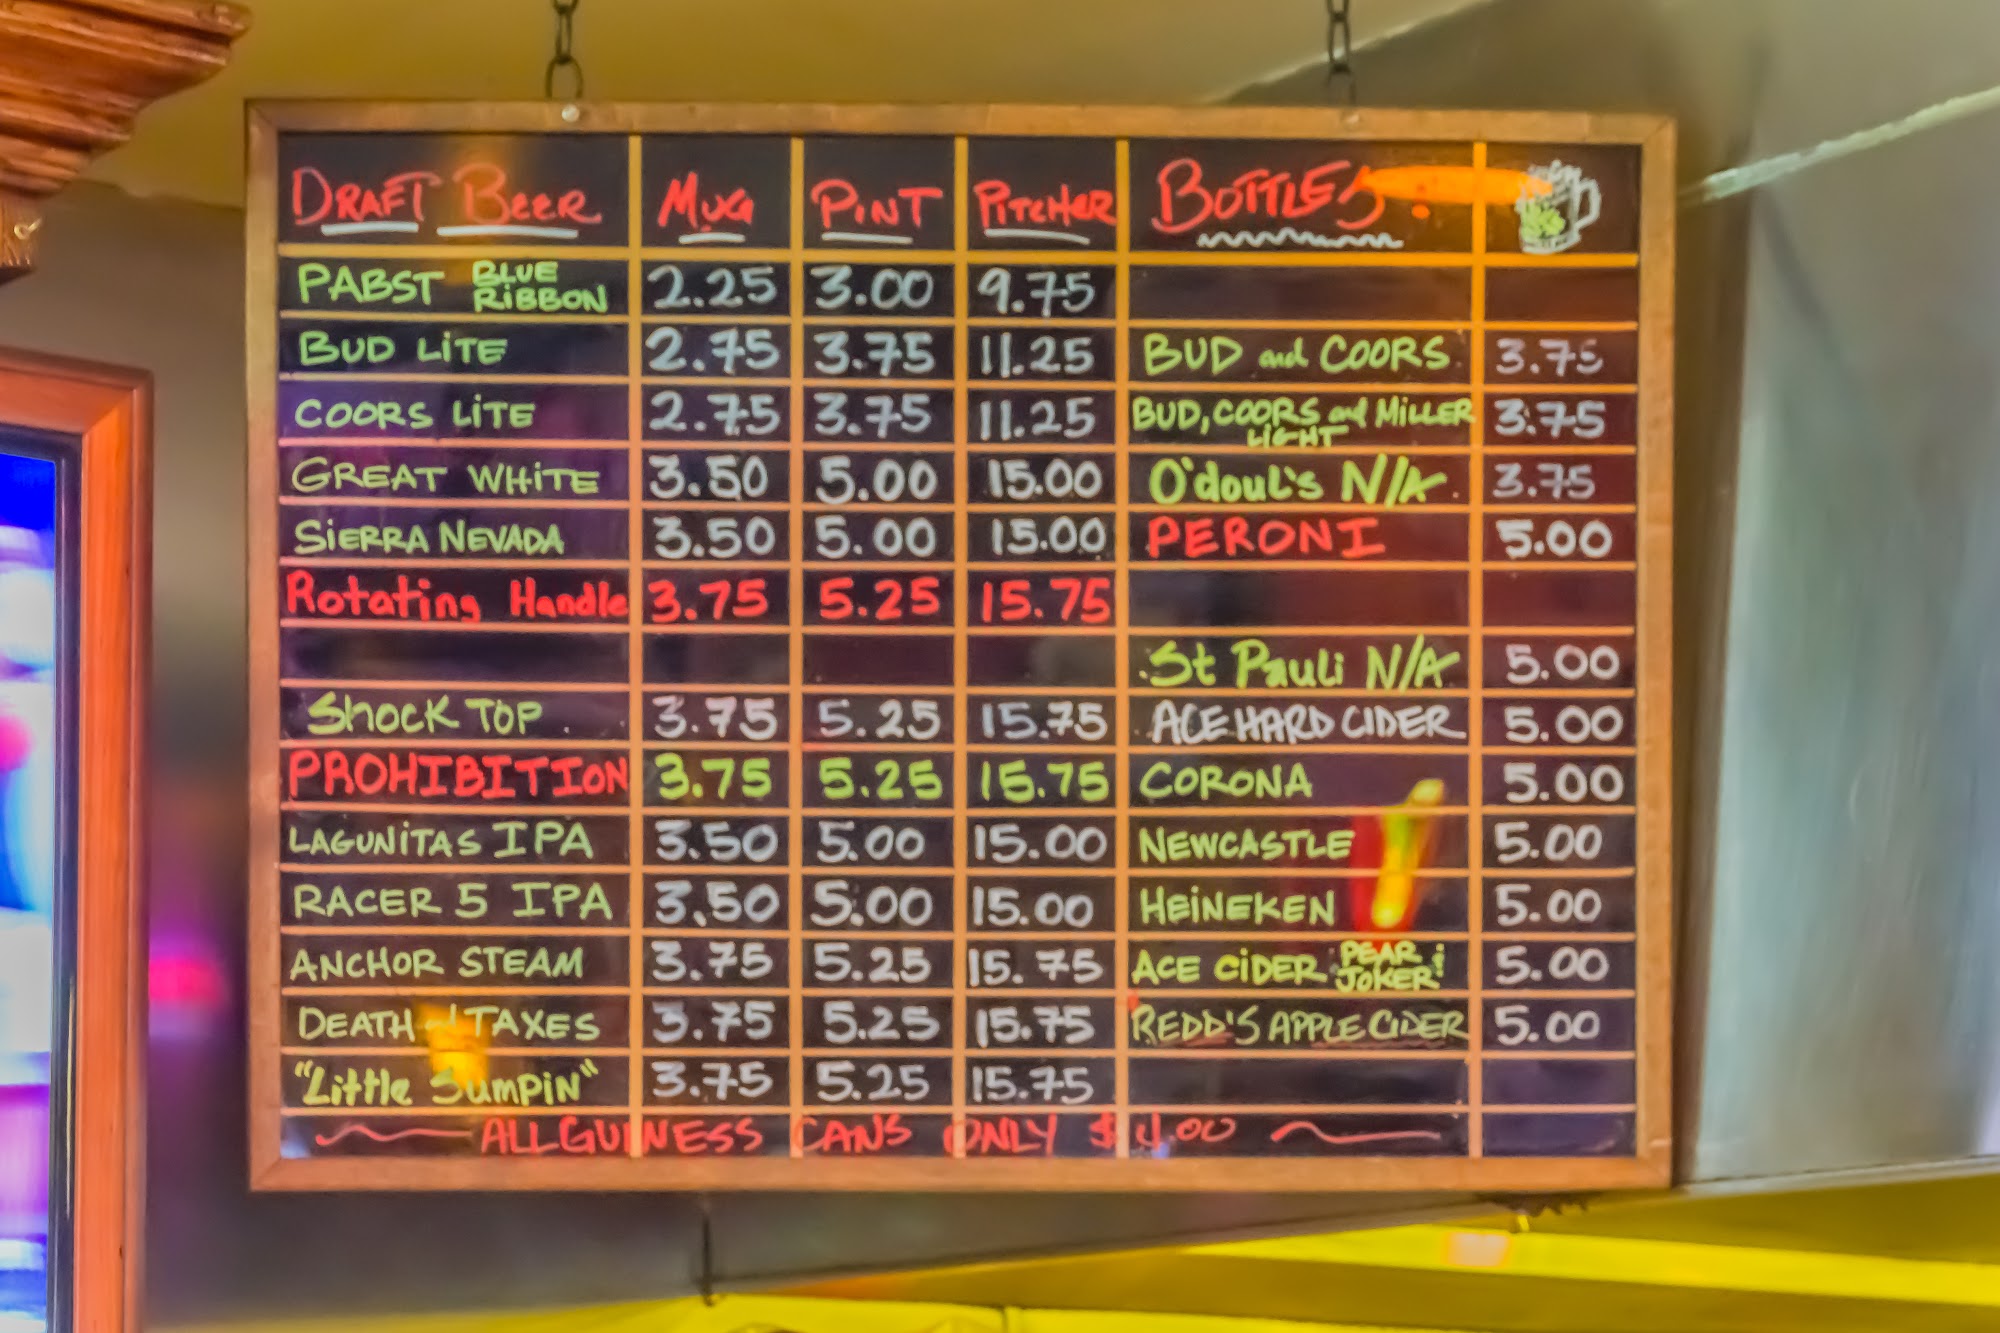 DRAFT BEER MUG PINT PITCHER BOTTLES
PABST BLUE RIBBON 2.25 3.00 9.75
BUD LITE 2.75 3.75 11.25 BUD and COORS 3.75
COORS LITE 2.75 3.75 11.25 BUD, COORS and MILLER LIGHT 3.75
GREAT WHITE 3.50 5.00 15.00 O'doul's N/A 3.75
SIERRA NEVADA 3.50 5.00 15.00 PERONI 5.00
Rotating Handle 3.75 5.25 15.75
St Pauli N/A 5.00
SHOCK TOP 3.75 5.25 15.75 ACE HARD CIDER 5.00
PROHIBITION 3.75 5.25 15.75 CORONA 5.00
LAGUNITAS IPA 3.50 5.00 15.00 NEWCASTLE 5.00
RACER 5 IPA 3.50 5.00 15.00 HEINEKEN 5.00
ANCHOR STEAM 3.75 5.25 15.75 ACE CIDER PEAR JOKER 5.00
DEATH TAXES 3.75 5.25 15.75 REDD'S APPLE CIDER 5.00
"Little Sumpin" 3.75 5.25 15.75
ALL GUINNESS CANS ONLY $4.00